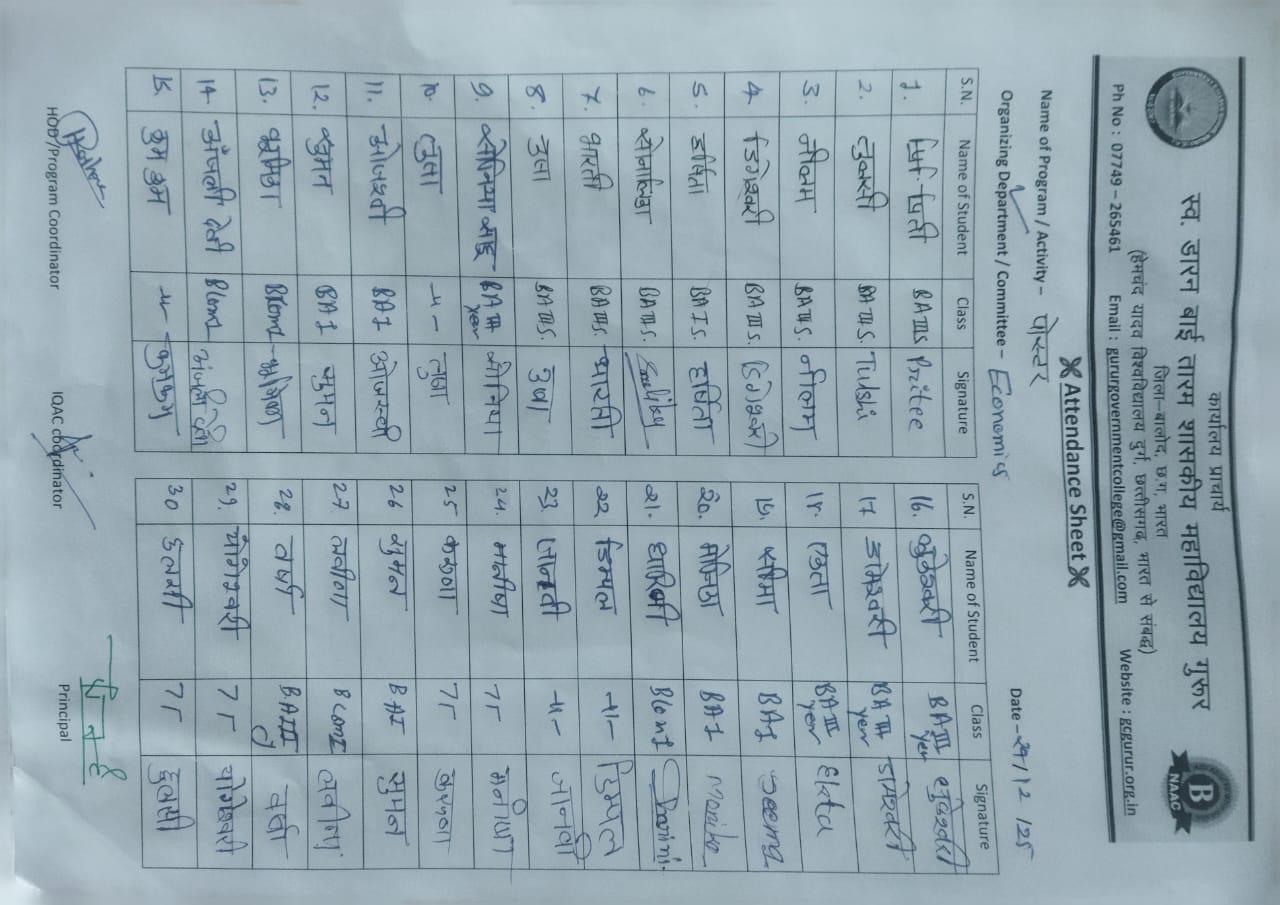 कार्यालय प्राचार्य
स्व. झारन बाई तारम शासकीय महाविद्यालय गुरूर
जिला–बालोद, छ.ग. भारत
(हेमचंद यादव विश्वविद्यालय दुर्ग, छत्तीसगढ़, भारत से संबद्ध)
Ph No : 07749 – 265461 Email : gururgovernmentcollege@gmail.com Website : gcgurur.org.in
B
NAAC
Attendance Sheet
Name of Program / Activity – पोस्टर
Date – /12/25
Organizing Department / Committee – Economics
S.N. Name of Student Class Signature
1. BA III S Pritee
2. तुलसी BA III S. Tulshi
3. नीलम BA III S. नीलम
4 BA III S.
5. हर्षिता BA I S. हर्षिता
6. सोनालिका BA III S.
7. भारती BA III S. भारती
8. BA III S.
9. सोनिया साहू BA III year सोनिया
10. -"-
11. ओजस्वी BA I ओजस्वी
12. सुमन BA I सुमन
13. भूमिका BCom I भूमिका
14. अंजली देवी BCom I अंजली देवी
15. कुमकुम -"- कुमकुम
S.N. Name of Student Class Signature
16. BA III year
17 डामेश्वरी BA III year डामेश्वरी
18. एकता BA III year Ekta
19. सीमा BA I Seema
20. मोनिका BA I Monika
21. धारिणी BCom I Dharini
22 डिम्पल -"- डिम्पल
23. जानवी -"- जानवी
24. मनीषा
25 करुणा करुणा
26 सुमन B.A I सुमन
27 नवीता B Com I
28. वर्षा B.A III वर्षा
29. योगेश्वरी योगेश्वरी
30
HOD/Program Coordinator IQAC coordinator Principal